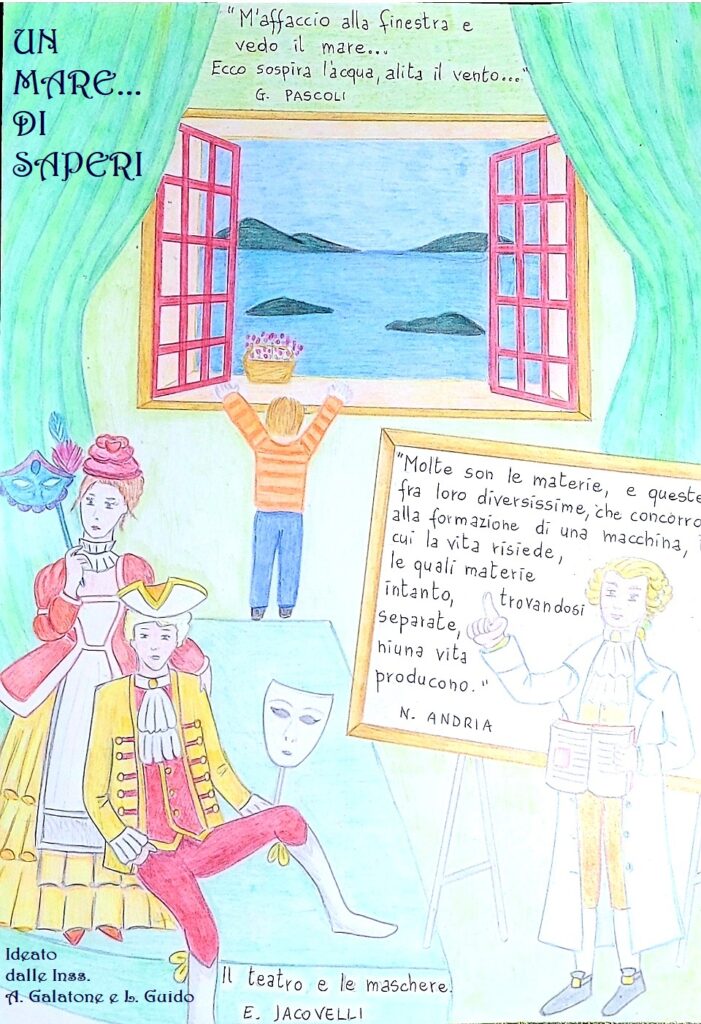 UN
MARE...
DI
SAPERI
"M'affaccio alla finestra e
vedo il mare...
Ecco sospira l'acqua, alita il vento..."
G. PASCOLI
"Molte son le materie, e queste
fra loro diversissime, che concorro
alla formazione di una macchina, i
cui la vita risiede,
le quali materie
intanto, trovandosi
separate,
niuna vita
producono."
N. ANDRIA
Il teatro e le maschere.
E. JACOVELLI
Ideato
dalle Inss.
A. Galatone e L. Guido